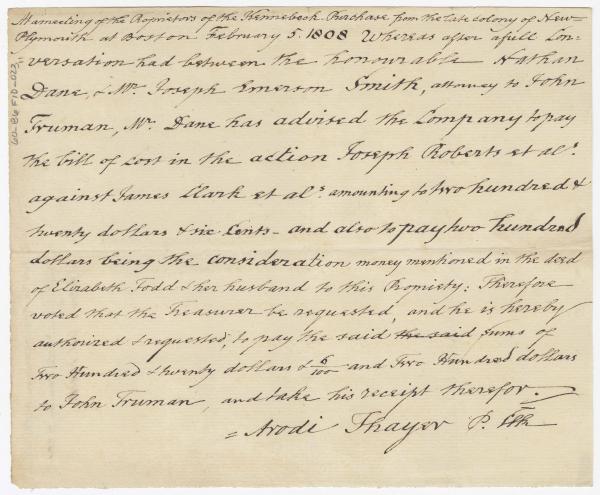 At a meeting of the Proprietors of the Kennebeck Purchase from the late colony of New=
Plymouth at Boston February 5. 1808 Whereas after a full Con=
versation had between the honourable Nathan
Dane, & Mr. Joseph Emerson Smith, attorney to John
Truman, Mr. Dane has advised the Company to pay
the bill of cost in the action Joseph Roberts et als.
against James Clark et als. amounting to two hundred &
twenty dollars & six Cents - and also to pay two hundred
dollars being the consideration money mentioned in the deed
of Elizabeth Todd & her husband to this Propriety: Therefore
voted that the Treasurer be requested, and he is hereby
authorized & requested, to pay the said the said sums of
Two Hundred & twenty dollars & 6/100 and Two Hundred dollars
to John Truman, and take his receipt therefor.
= Arodi Thayer P. Clk